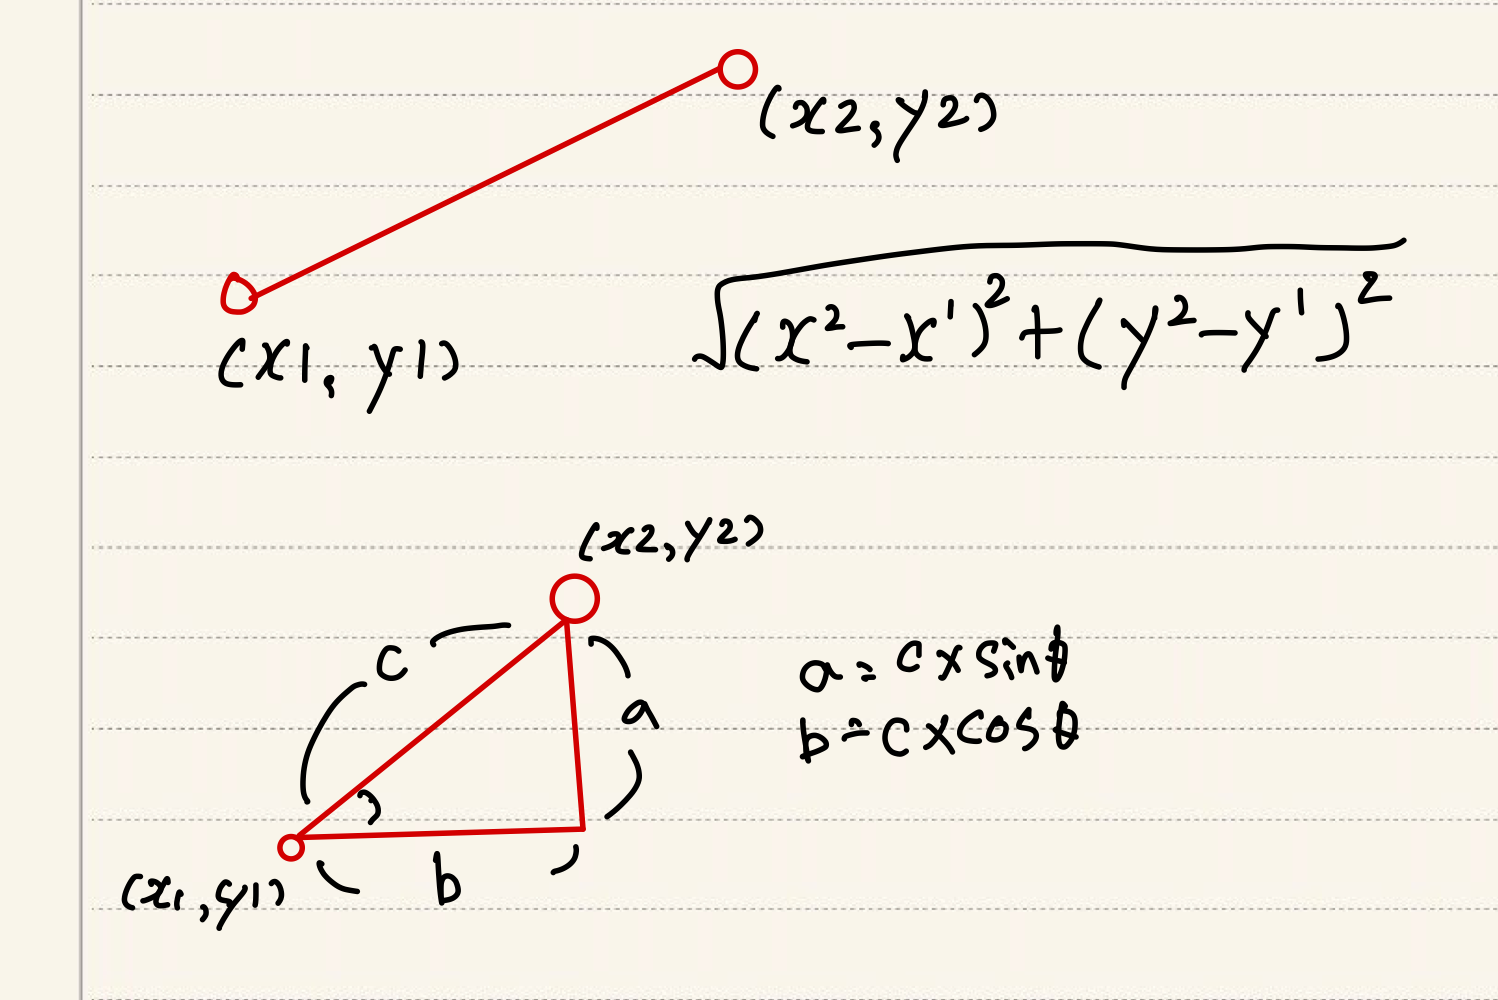 (x2, y2)
(x1, y1)
√(x²-x')²+(y²-y')²
(x2, y2)
c
a
b
(x1, y1)
a = c x sinθ
b = c x cosθ